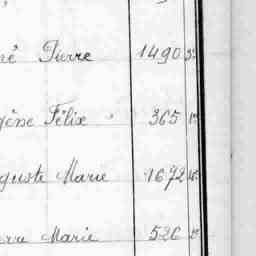 né Pierre 1490
gène Félix 365
guste Marie 1672
rre Marie 526